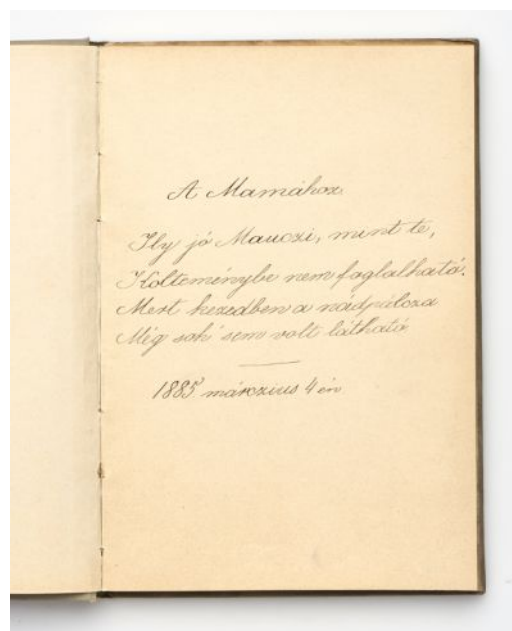 A Mamához.
Ily jó Mauczi, mint te,
Költeménybe nem foglalható.
Mert kezedben a nádpálcza
Még soh' sem volt látható
1885 márczius 4 én